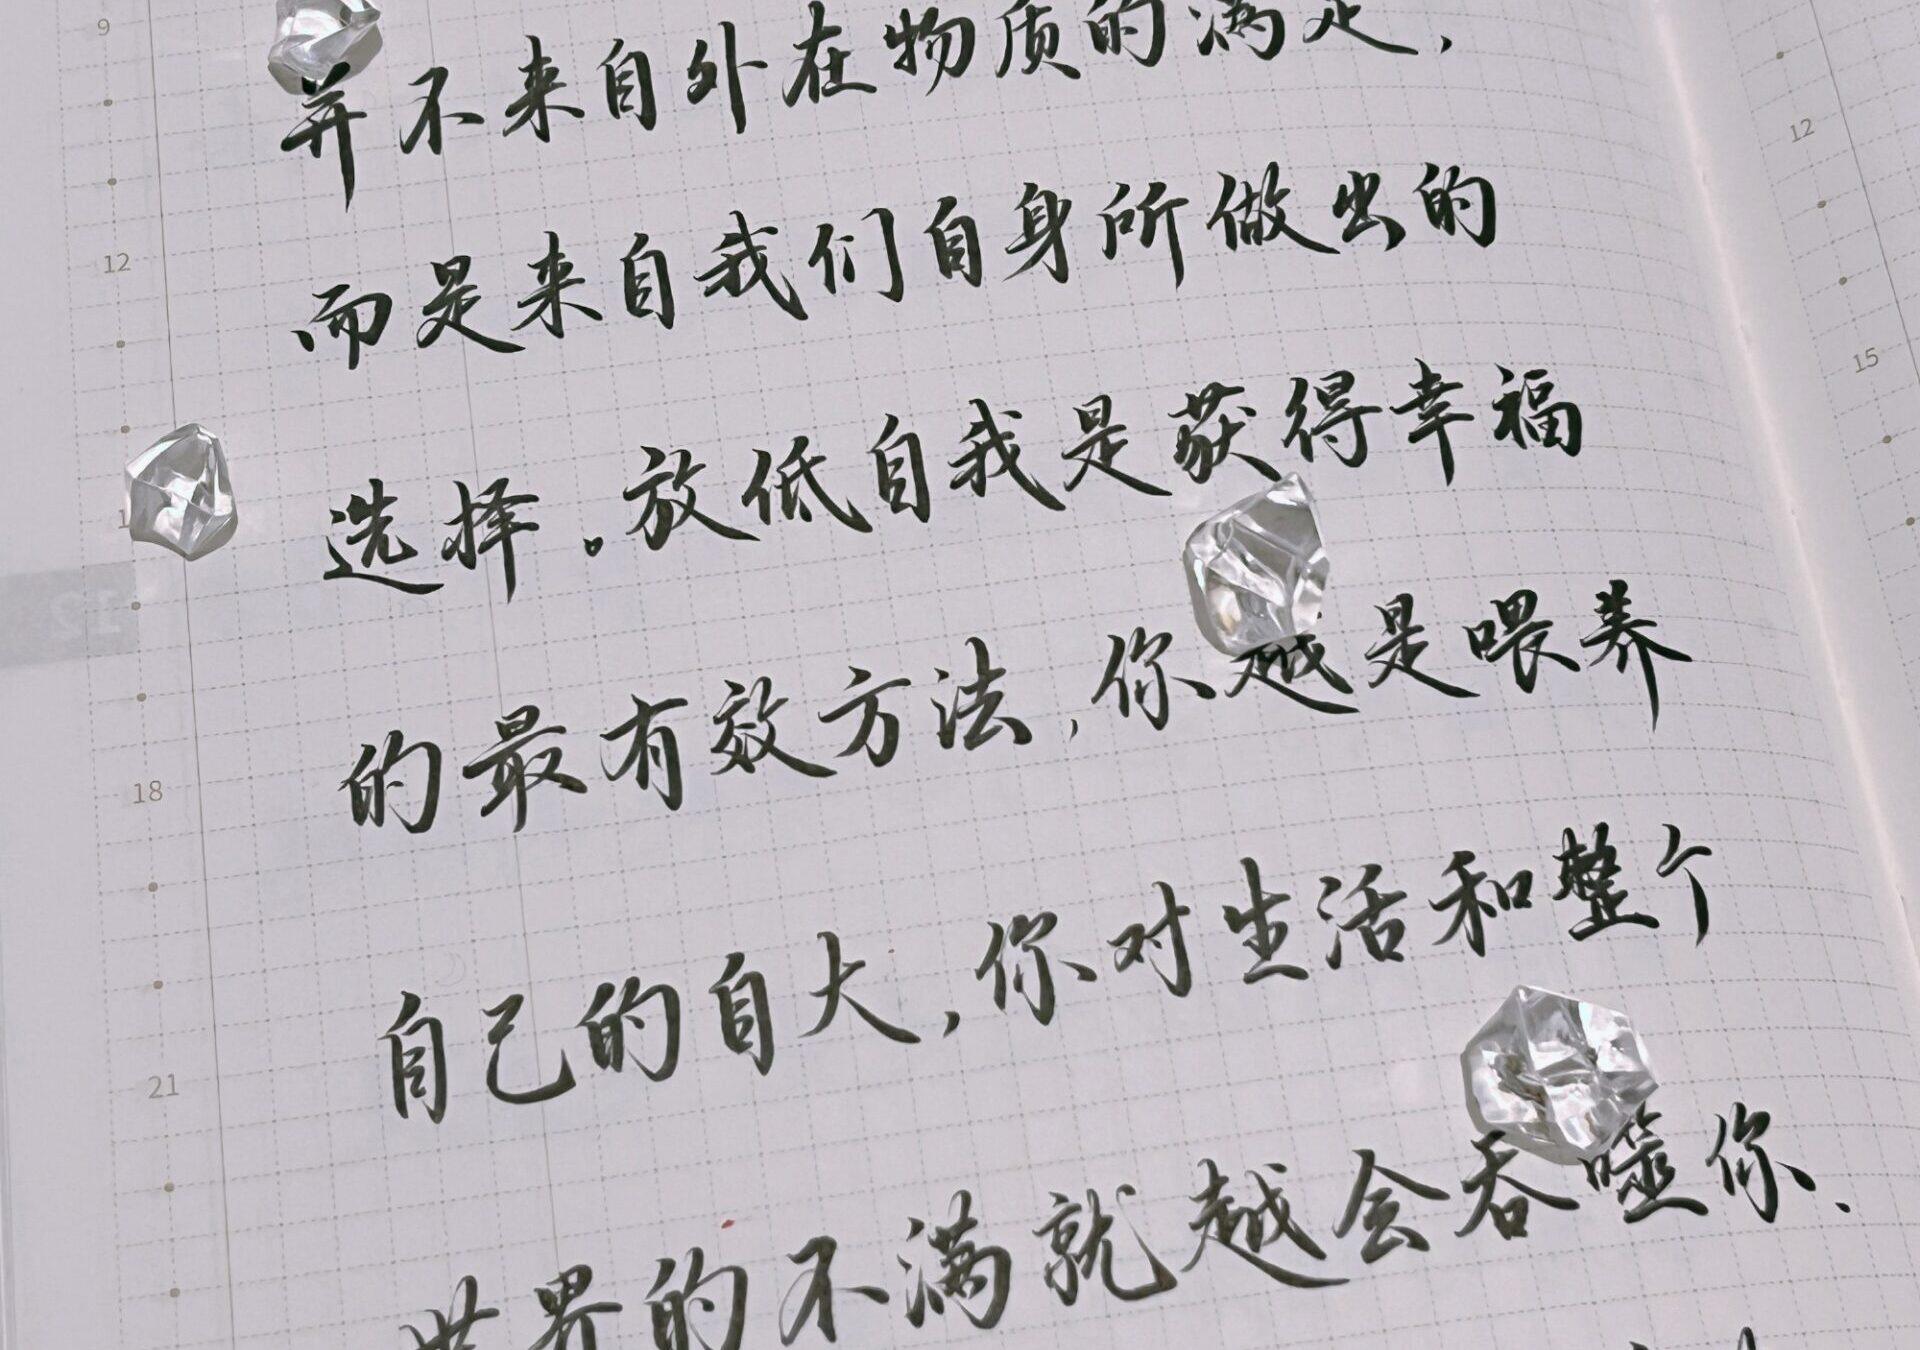 9
并不来自外在物质的满足，
12
而是来自我们自身所做出的
选择。放低自我是获得幸福
的最有效方法，你越是喂养
18
自己的自大，你对生活和整个
21
世界的不满就越会吞噬你、
12
15